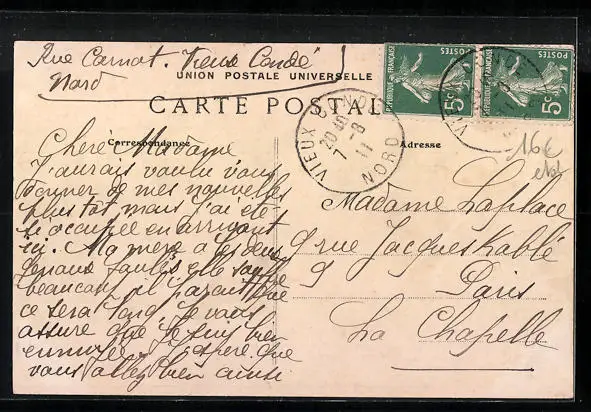 Rue Carnot. Vieux Condé
Nord
UNION POSTALE UNIVERSELLE
CARTE POSTAL
Correspondance
Adresse
REPUBLIQUE FRANÇAISE
POSTES
5c
REPUBLIQUE FRANÇAISE
POSTES
5c
VIEUX CONDÉ
20 40
7 - 8
11
NORD
16€
Chère Madame
J'aurais voulu vous
donner de mes nouvelles
plus tôt mais j'ai été
si occupée en arrivant
ici. Ma mère a les deux
genoux foulés elle souffre
beaucoup il paraît que
ce sera long. Je vous
assure que je suis bien
ennuyée. J'espère que
vous allez bien ainsi
Madame Laplace
9 rue Jacques Kablé
9 Paris
La Chapelle